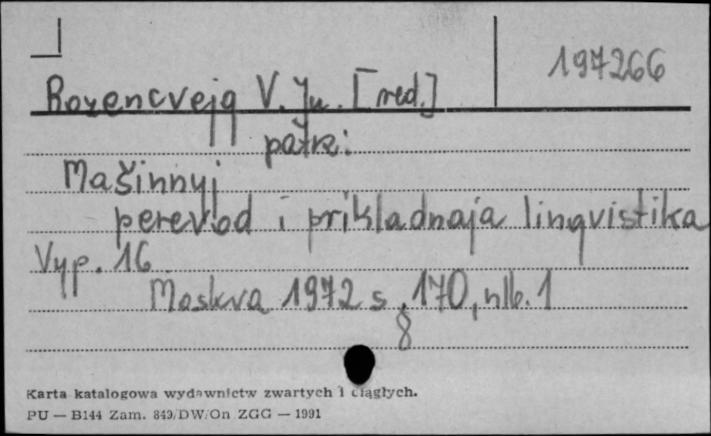 197266
Rozencvejg V. Ju. [red.]
patrz:
Mašinnyj
perevod i prikladnaja lingvistika
Vyp. 16
Moskva 1972 s. 170, nlb. 1
8
Karta katalogowa wydawnictw zwartych i ciągłych.
PU — B144 Zam. 849/DW/On ZGG — 1991